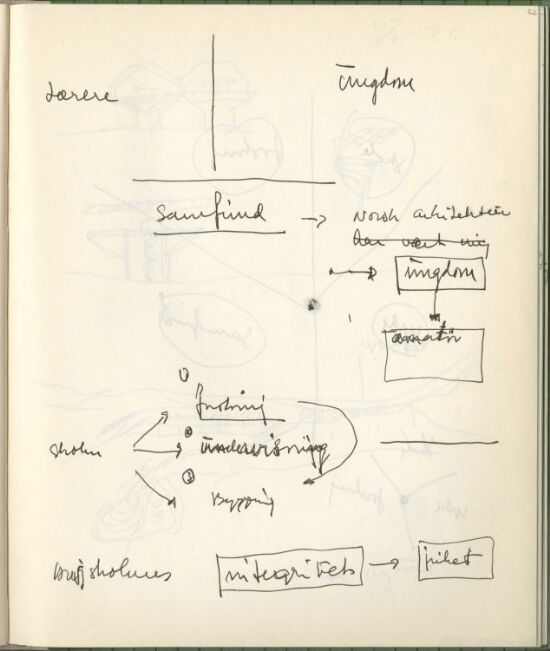 Lærere ungdom
Samfund → Norsk arkitektur
har vært ung
→ ungdom
amatør
1)
forskning
skolen ② undervisning
③
Bygging
integritet → frihet